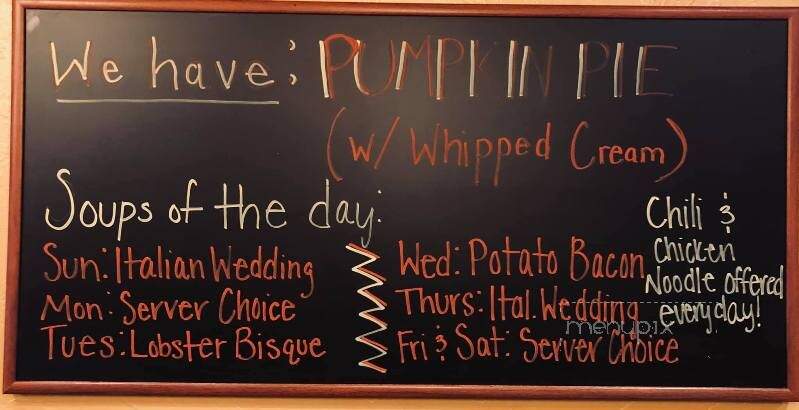 We have; PUMPKIN PIE
(w/ Whipped Cream)
Soups of the day:
Sun: Italian Wedding
Mon: Server Choice
Tues: Lobster Bisque
Wed: Potato Bacon
Thurs: Ital. Wedding
Fri & Sat: Server Choice
Chili &
Chicken
Noodle offered
everyday!
menupix